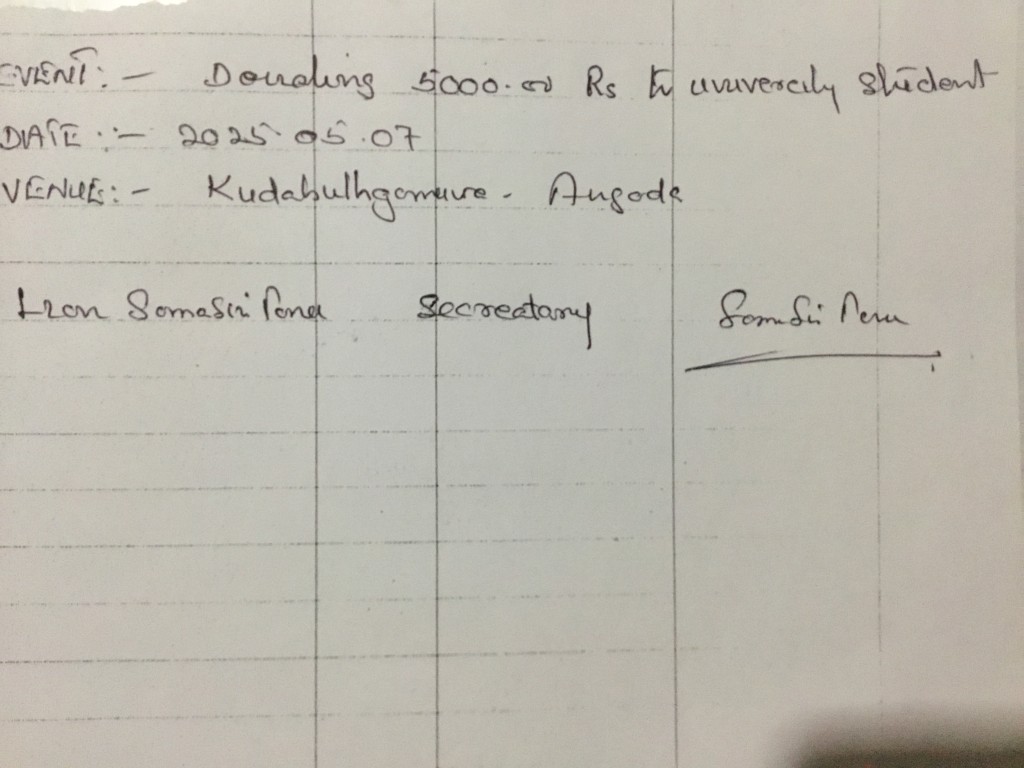 EVENT:- Donating 5000.00 Rs to univercity student
DATE:- 2025.05.07
VENUE:- Kudabuthgamuwa - Angoda
Lion Somasiri Secreatary